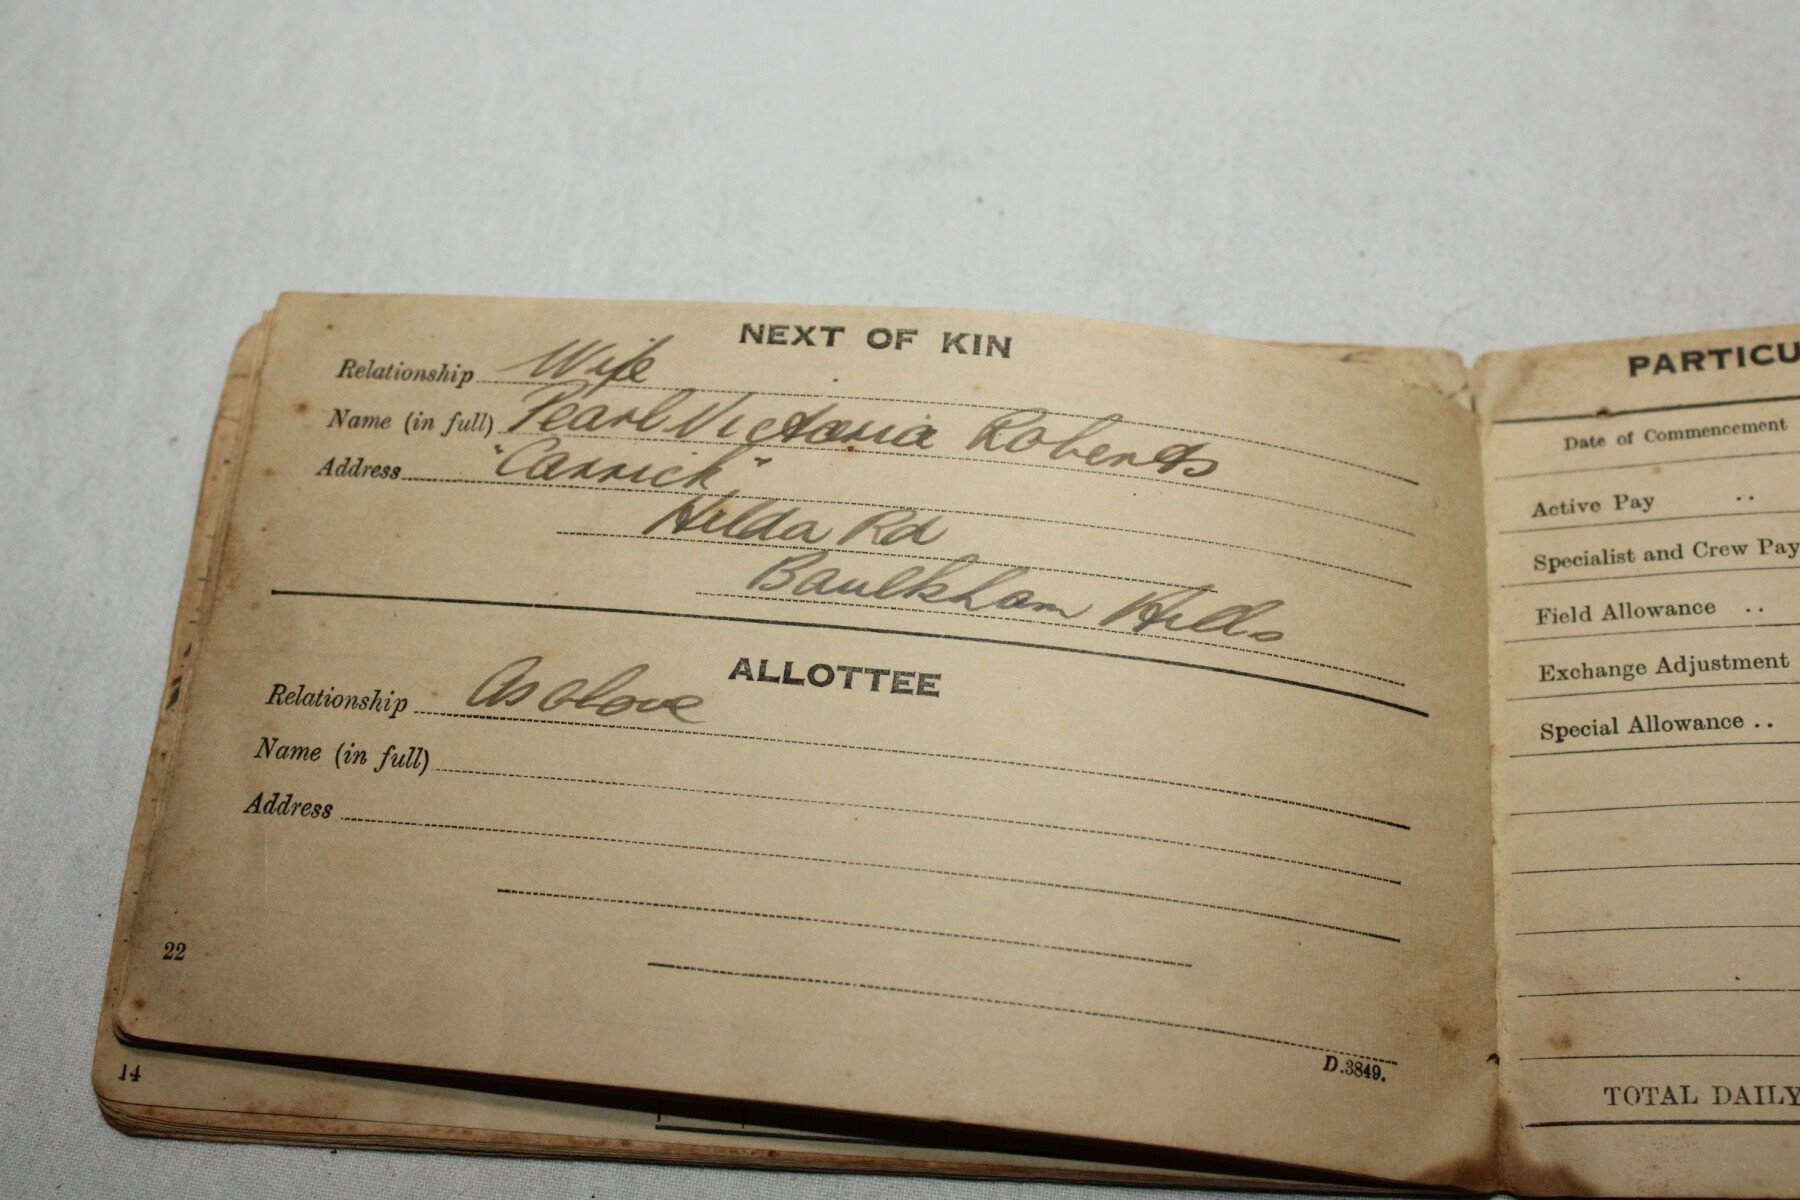 NEXT OF KIN
Relationship Wife
Name (in full) Pearl Victoria Roberts
Address "Carrick"
Hilda Rd
Baulkham Hills
ALLOTTEE
Relationship As above
Name (in full)
Address
22
D.3849.
14
PARTICU
Date of Commencement
Active Pay ..
Specialist and Crew Pay
Field Allowance ..
Exchange Adjustment
Special Allowance ..
TOTAL DAILY